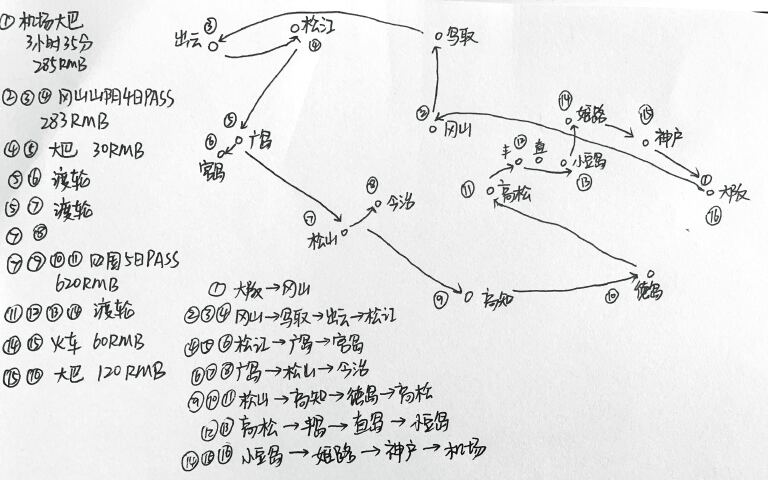 ① 机场大巴
3小时35分
285RMB
②③④ 冈山山阴4日PASS
283RMB
④⑤ 大巴 30RMB
⑤⑥ 渡轮
⑤⑦ 渡轮
⑦⑧
⑦⑨⑩⑪ 四国5日PASS
620RMB
⑪⑫⑬⑭ 渡轮
⑭⑮ 火车 60RMB
⑮⑯ 大巴 120RMB
③
出云
松江
④
鸟取
②
冈山
⑤
广岛
⑥
宫岛
⑦
松山
⑧
今治
⑨
高知
⑩
德岛
⑪
高松
丰
⑫
直
小豆岛
⑬
⑭
姬路
⑮
神户
①
大阪
⑯
① 大阪→冈山
②③④ 冈山→鸟取→出云→松江
④⑤⑥ 松江→广岛→宫岛
⑥⑦⑧ 广岛→松山→今治
⑨⑩⑪ 松山→高知→德岛→高松
⑫⑬ 高松→丰岛→直岛→小豆岛
⑭⑮⑯ 小豆岛→姬路→神户→机场